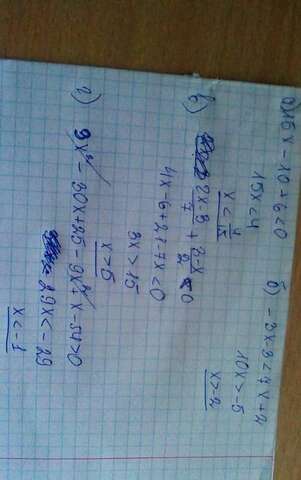 а) 15x - 10 + 6 < 0
15x < 4
x < 4/15
б) - 3x - 3 < 7x + 2
10x > -5
x > -2
в) (2x - 3)/7 + (2 - x)/2 < 0
4x - 6 + 21 - 7x < 0
3x > 15
x > 5
г) 9x² - 30x + 25 - 9x² + x - 54 > 0
29x < -29
x < -1